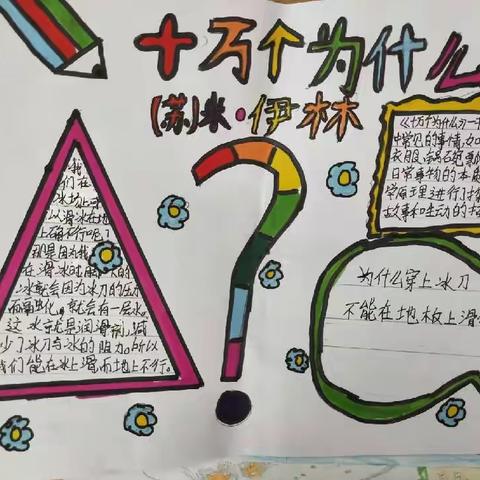 十万个为什么
(苏)米·伊林
《十万个为什么》一书
中常见的事情,如
衣服、锅
日常事物的本质
学原理进行了
故事和生动的
我
们在
冰场上
以滑冰在地
上确不行呢?
那是因为我
在滑冰时
冰就会因为冰刀的压力
而融化,就会有一层水。
这水就是润滑剂,减
少了冰刀与冰的阻力。所以
我们能在冰上滑而地上不行。
为什么穿上冰刀
不能在地板上滑